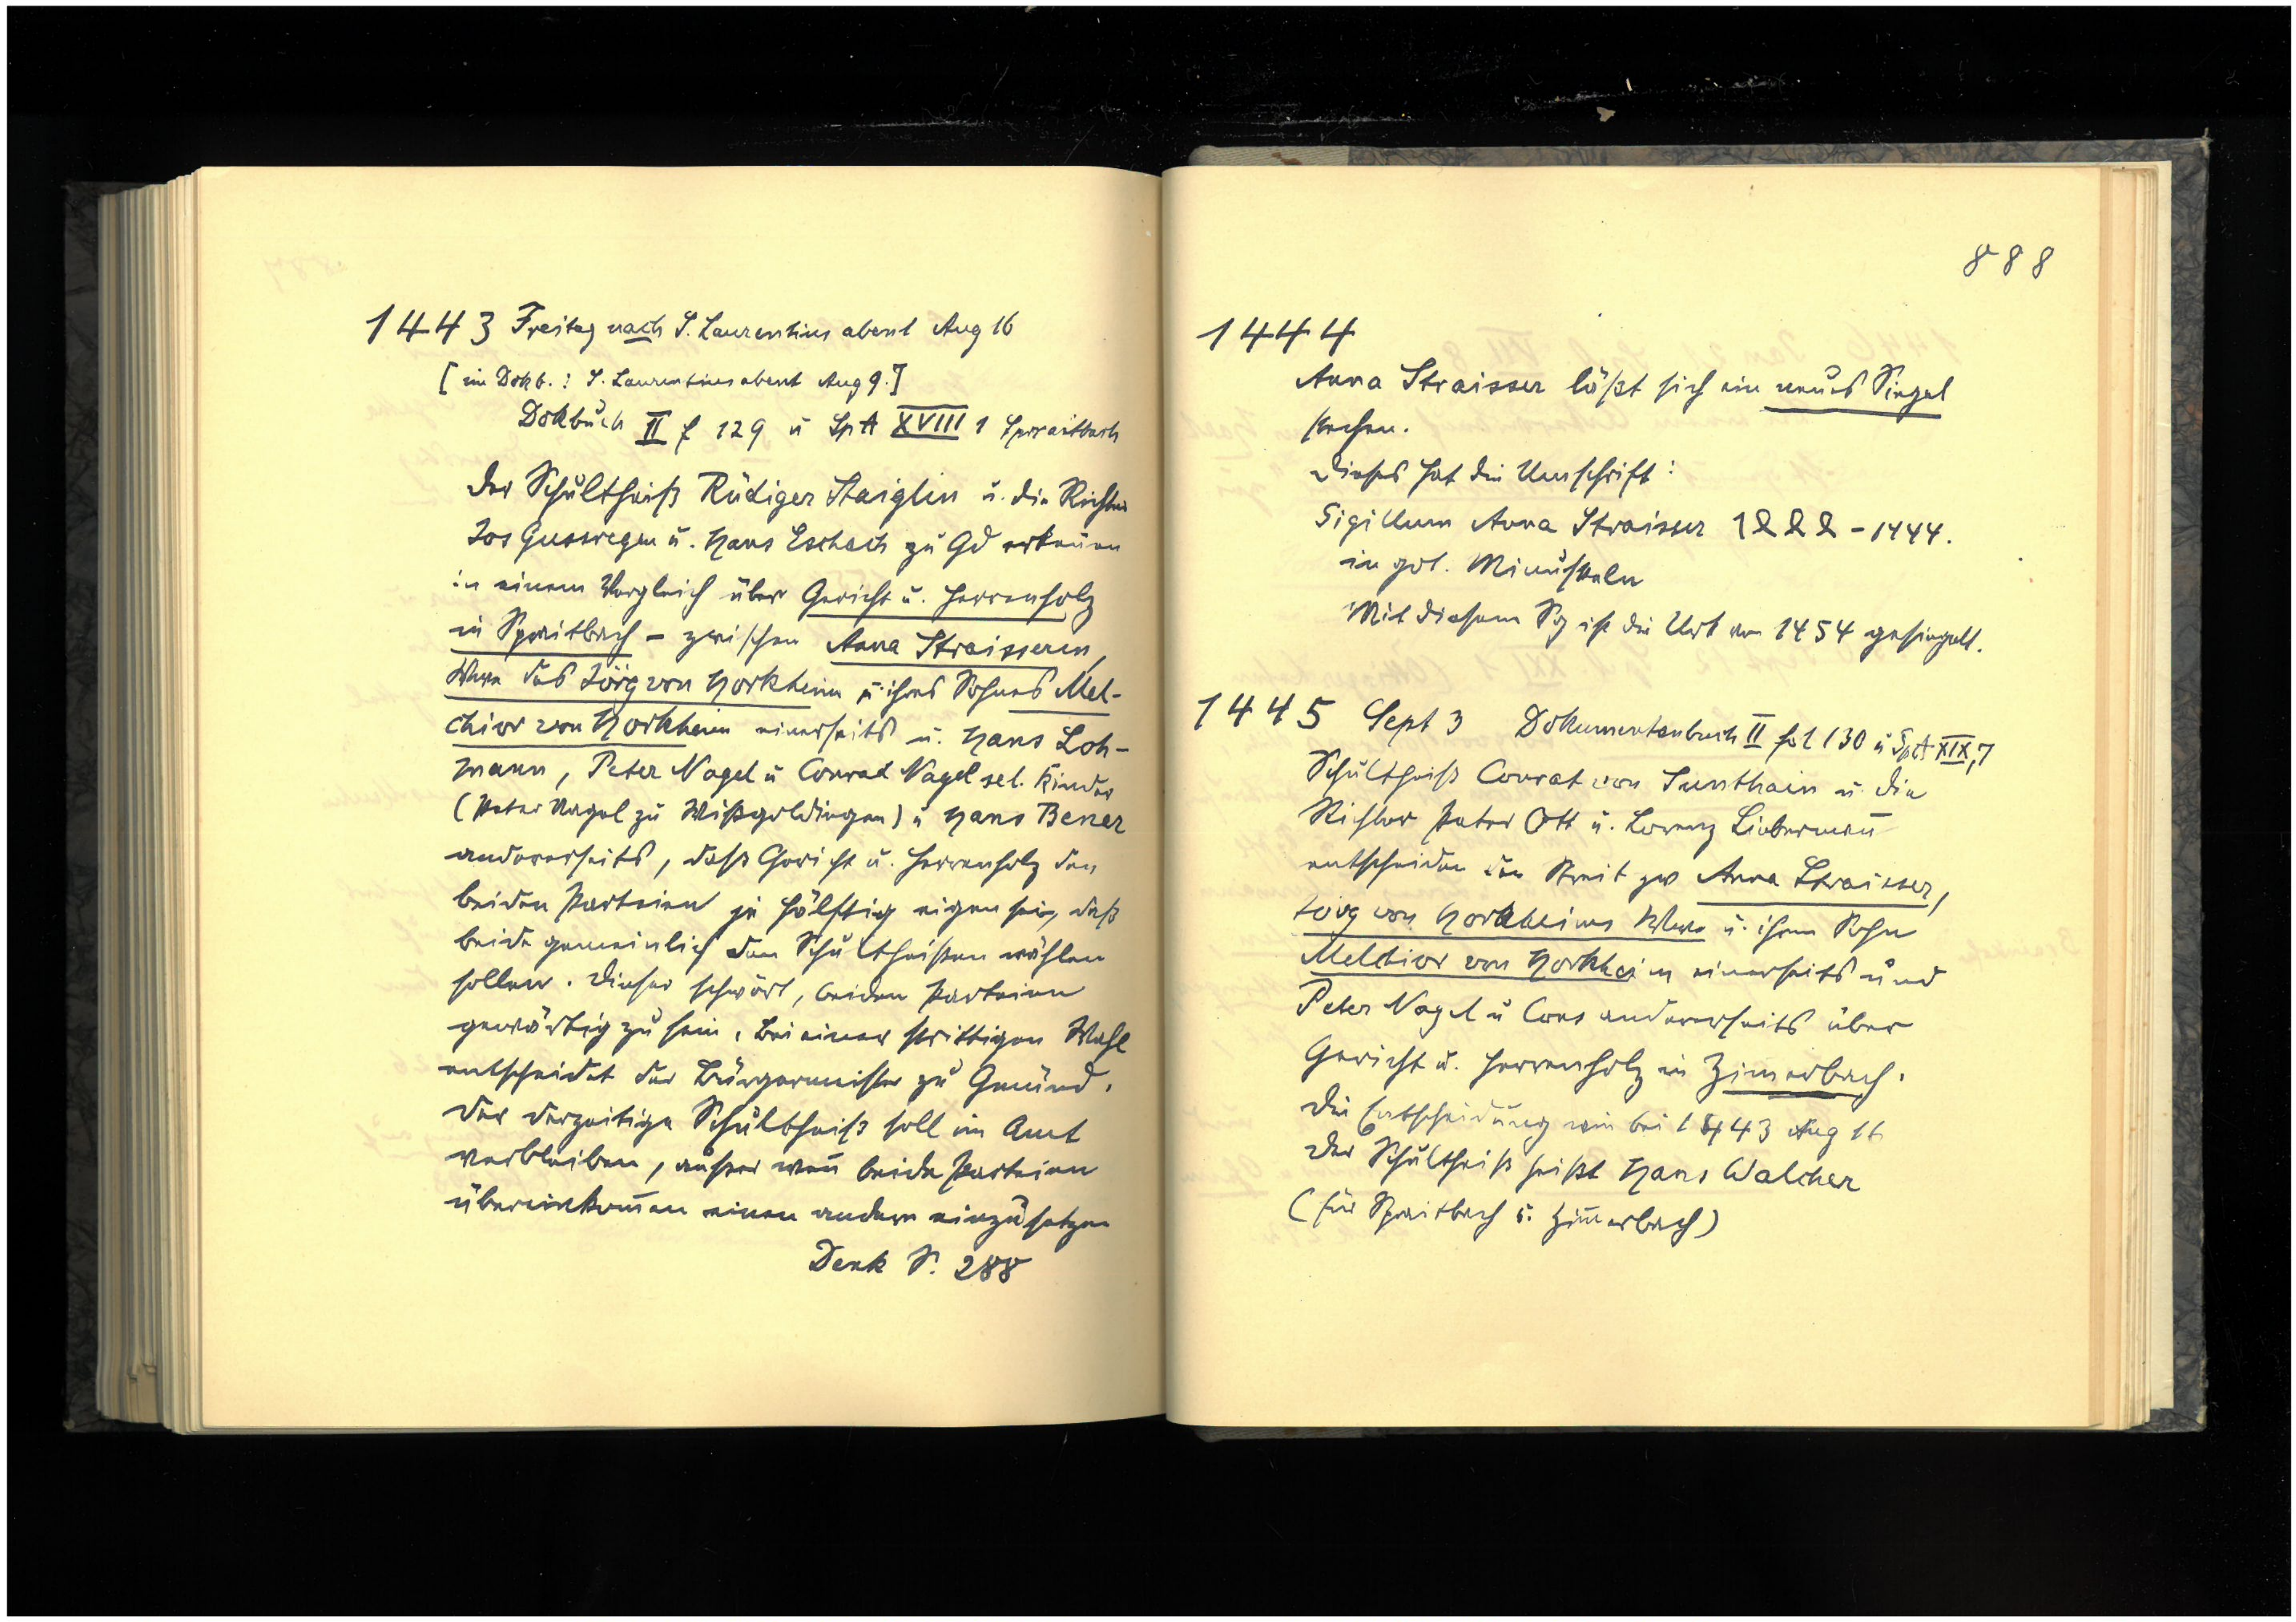 1443 Freitag nach S. Laurentius abent Aug 16
[im Dokb.: S. Laurentius abent Aug 9.]
Dokbuch II f 129 u SpA XVIII 1 Spraitbach
Der Schultheiß Rüdiger Staiglin u. die Richter
Jos Gussregen u. Hans Eschach zu Gd erkennen
in einem Vergleich über Gericht u. Herrenholz
in Spraitbach – zwischen Anna Straisseren,
Wwe des Jörg von Horkheim u. ihres Sohnes Mel-
chior von Horkheim einerseits u. Hans Loh-
mann, Peter Nagel u Conrad Nagel sel. Kinder
(Peter Nagel zu Wißgoldingen) u Hans Bener
andererseits, daß Gericht u. Herrenholz den
beiden Parteien je hälftig eigen sei, daß
beide gemeinlich den Schultheißen wählen
sollen. Dieser schwört, beiden Parteien
gewärtig zu sein. Bei einer strittigen Wahl
entscheidet der Bürgermeister zu Gmünd.
Der derzeitige Schultheiß soll im Amt
verbleiben, außer wen̄ beide Parteien
übereinkom̄en einen andern einzusetzen
Denk S. 288
888
1444
Anna Straisser läßt sich ein neues Siegel
stechen.
Dieses hat die Umschrift:
Sigillum Anna Straisser 1ՋՋՋ – 1444.
in got. Minuskeln
Mit diesem Sg ist die Urk von 1454 gesiegelt.
1445 Sept 3 Dokumentenbuch II fol 130 u SpA XIX,7
Schultheiß Conrat von Sunthain u. die
Richter Peter Ott u. Lorenz Lieberman̄
entscheiden den Streit zw Anna Straisser,
Jörg von Horkheims Wwe u. ihrem Sohn
Melchior von Horkheim einerseits und
Peter Nagel u Cons andererseits über
Gericht u. Herrenholz in Zimerbach.
Die Entscheidung wie bei 1443 Aug 16
Der Schultheiß heißt Hans Walcher
(für Spraitbach u. Zim̄erbach)